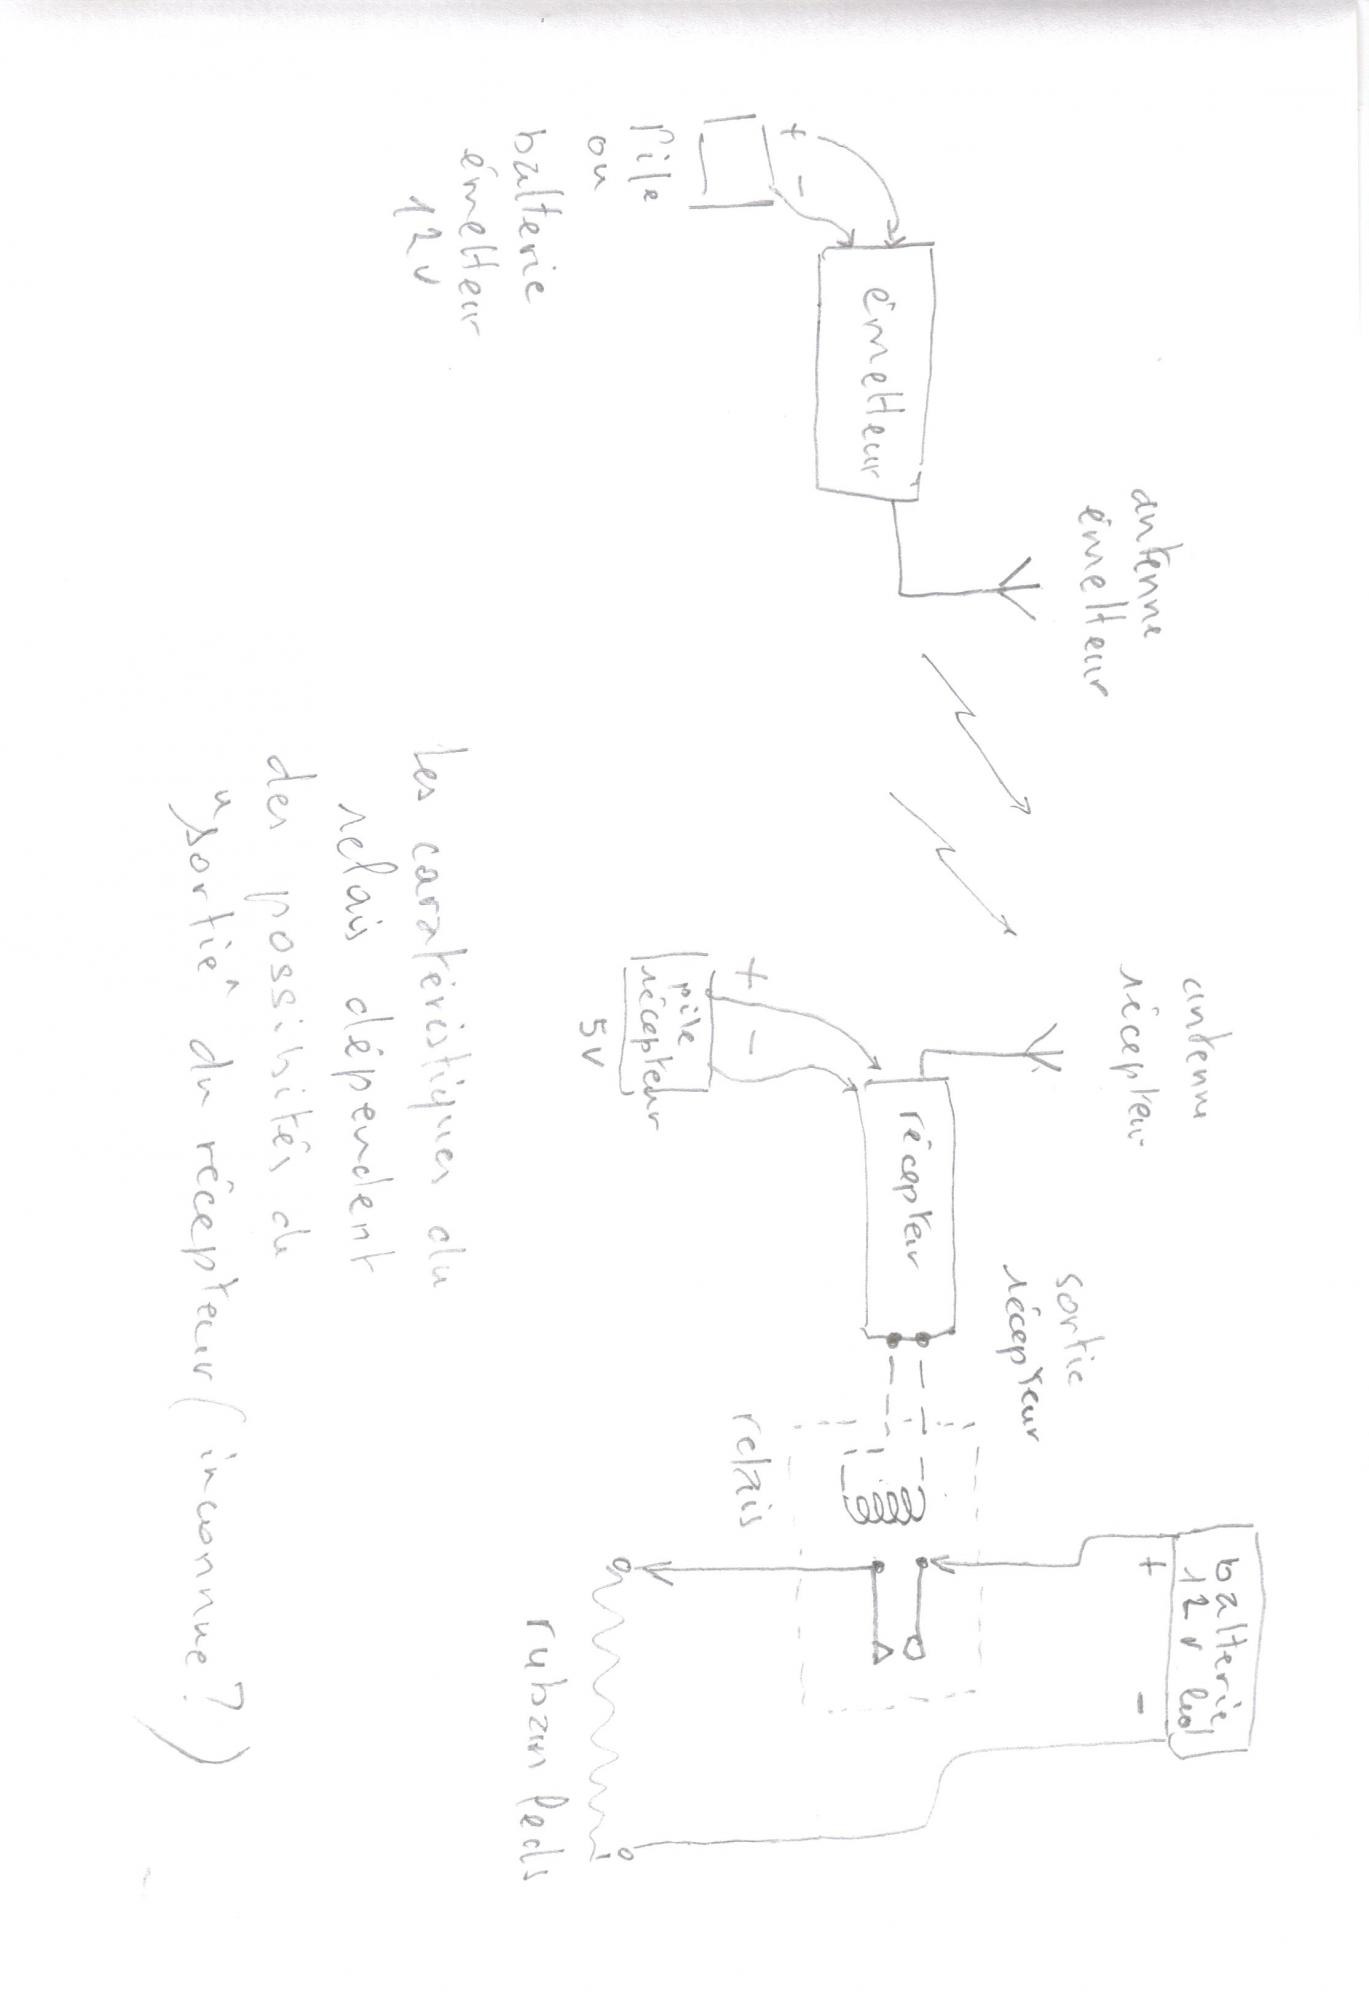 +
-
pile
ou
batterie
émetteur
12v
émetteur
antenne
émetteur
antenne
récepteur
+
-
pile
récepteur
5v
récepteur
sortie
récepteur
relais
batterie
12v led
+
-
ruban leds
les caratéristiques du
relais dépendent
des possibités de
"sortie" du récepteur (inconnue?)